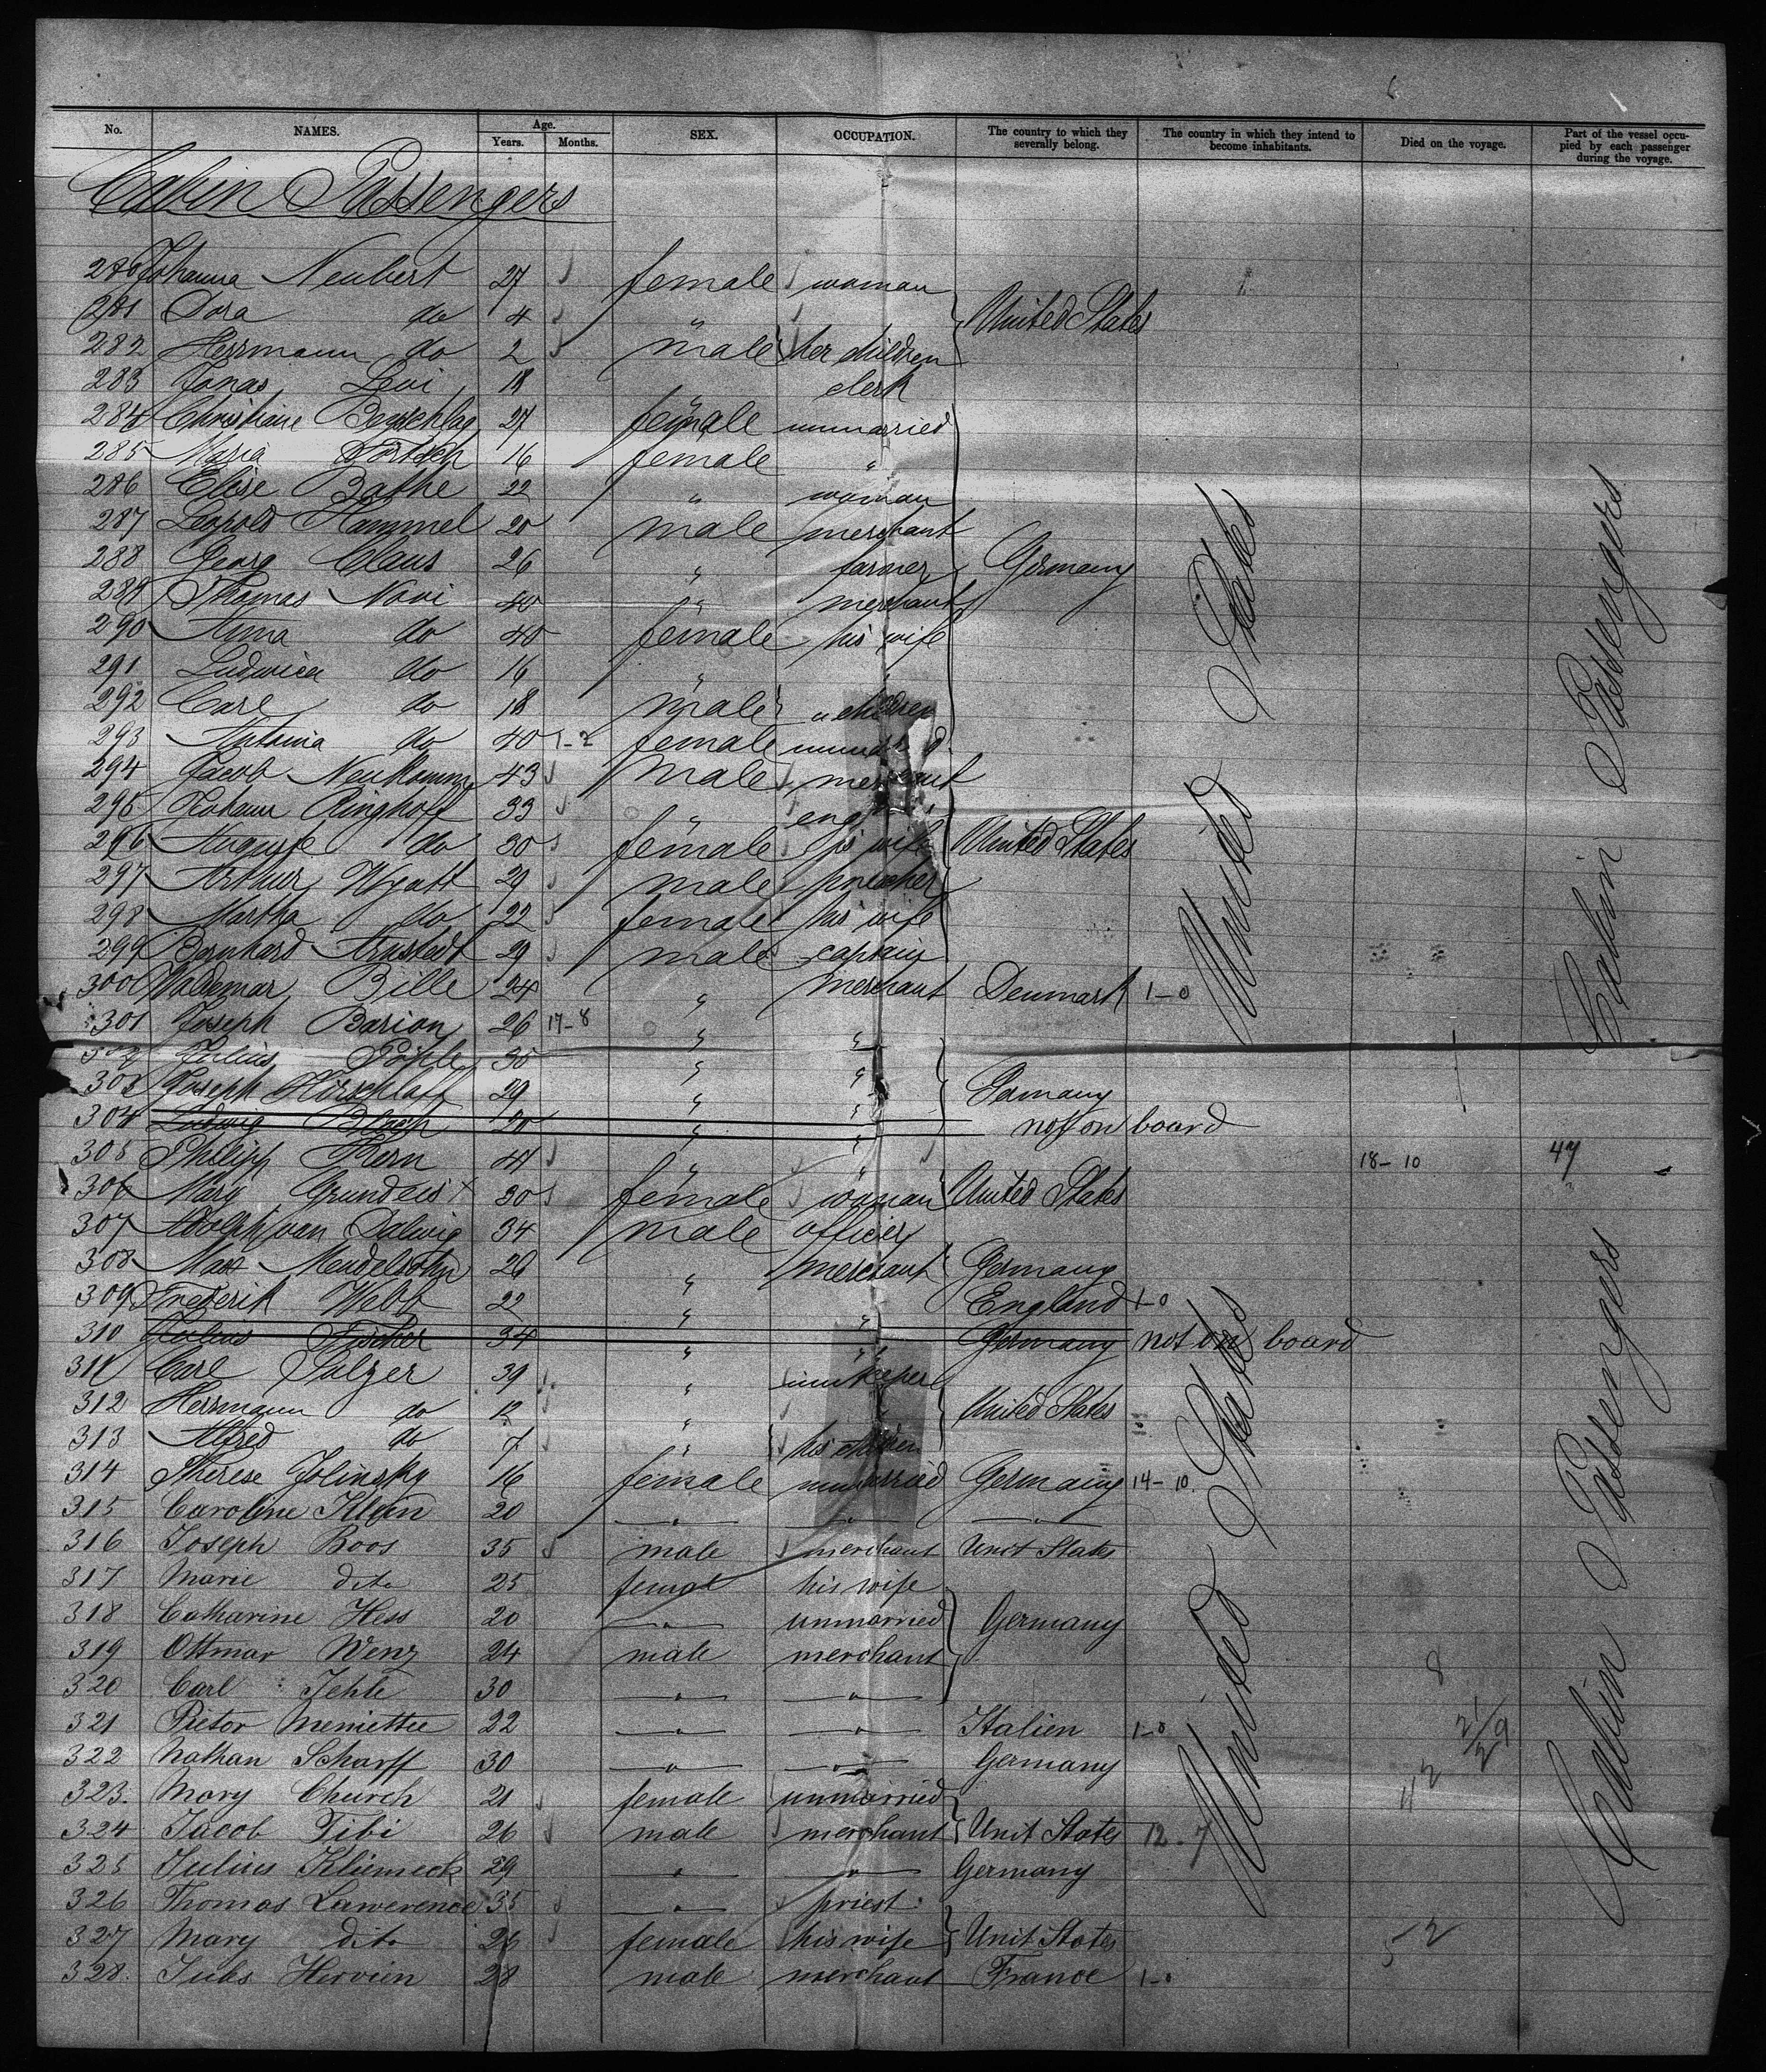 No. NAMES. Age. Years. Months. SEX. OCCUPATION. The country to which they severally belong. The country in which they intend to become inhabitants. Died on the voyage. Part of the vessel occupied by each passenger during the voyage.
Cabin Passengers
280 Johanna Neubert 27 female woman
281 Dora do 4 " United States
282 Herrmann do 2 male her children
283 Jonas Levi 18 " clerk
284 Christiane 27 female unmarried
285 Maria 16 female "
286 Elise Bathe 22 " woman
287 Leopold Hammel 20 male merchant
288 Georg Claus 26 " farmer Germany
289 Thomas Novi 40 " merchant
290 Anna do 40 female his wife
291 Ludwica do 16 "
292 Carl do 18 male " children
293 Antonia do 40 1-2 female
294 Jacob Neukomm 43 male merchant
295 Johann Ringhoff 33 "
296 Auguste do 30 female his wife United States
297 Arthur Wyatt 29 male preacher
298 Martha do 22 female his wife
299 Bernhard Arnstedt 29 male captain
300 Waldemar Bille 24 " merchant Denmark 1-0
301 Joseph Barion 26 17-8 " "
302 Julius 35 " "
303 Joseph Hirschlaff 29 " " Germany
304 Ludwig 20 " " not on board
305 Philipp Kern 44 " " 18-10 47
306 Mary Grundeis x 30 female woman United States
307 Adolph van Dalwig 34 male officer
308 Max Mendelsohn 26 " merchant Germany
309 Frederik Webb 22 " " England 1-0
310 Julius Fischer 34 " " Germany not on board
311 Carl Sulzer 39 " innkeeper
312 Herrmann do 12 " United States
313 Alfred do 7 " his children
314 Therese Jolinsky 16 female unmarried Germany 14-10
315 Caroline Klein 20 " " "
316 Joseph Boos 35 male merchant Unit States
317 Marie dito 25 female his wife
318 Catharine Hess 20 " unmarried Germany
319 Ottmar Wenz 24 male merchant
320 Carl Jehle 30 " " 8
321 Pietor Meniettee 22 " " Italien 1-0
322 Nathan Scharff 30 " " Germany
323. Mary Church 21 female unmarried
324 Jacob Tibi 26 male merchant Unit States 12-7
325 Julius Kliemeck 29 " " Germany
326 Thomas Lawerence 35 " priest
327 Mary dito 26 female his wife Unit States 52
328. Jules Hervien 28 male merchant France 1-0
United States
United States
Cabin Passengers
Cabin Passengers